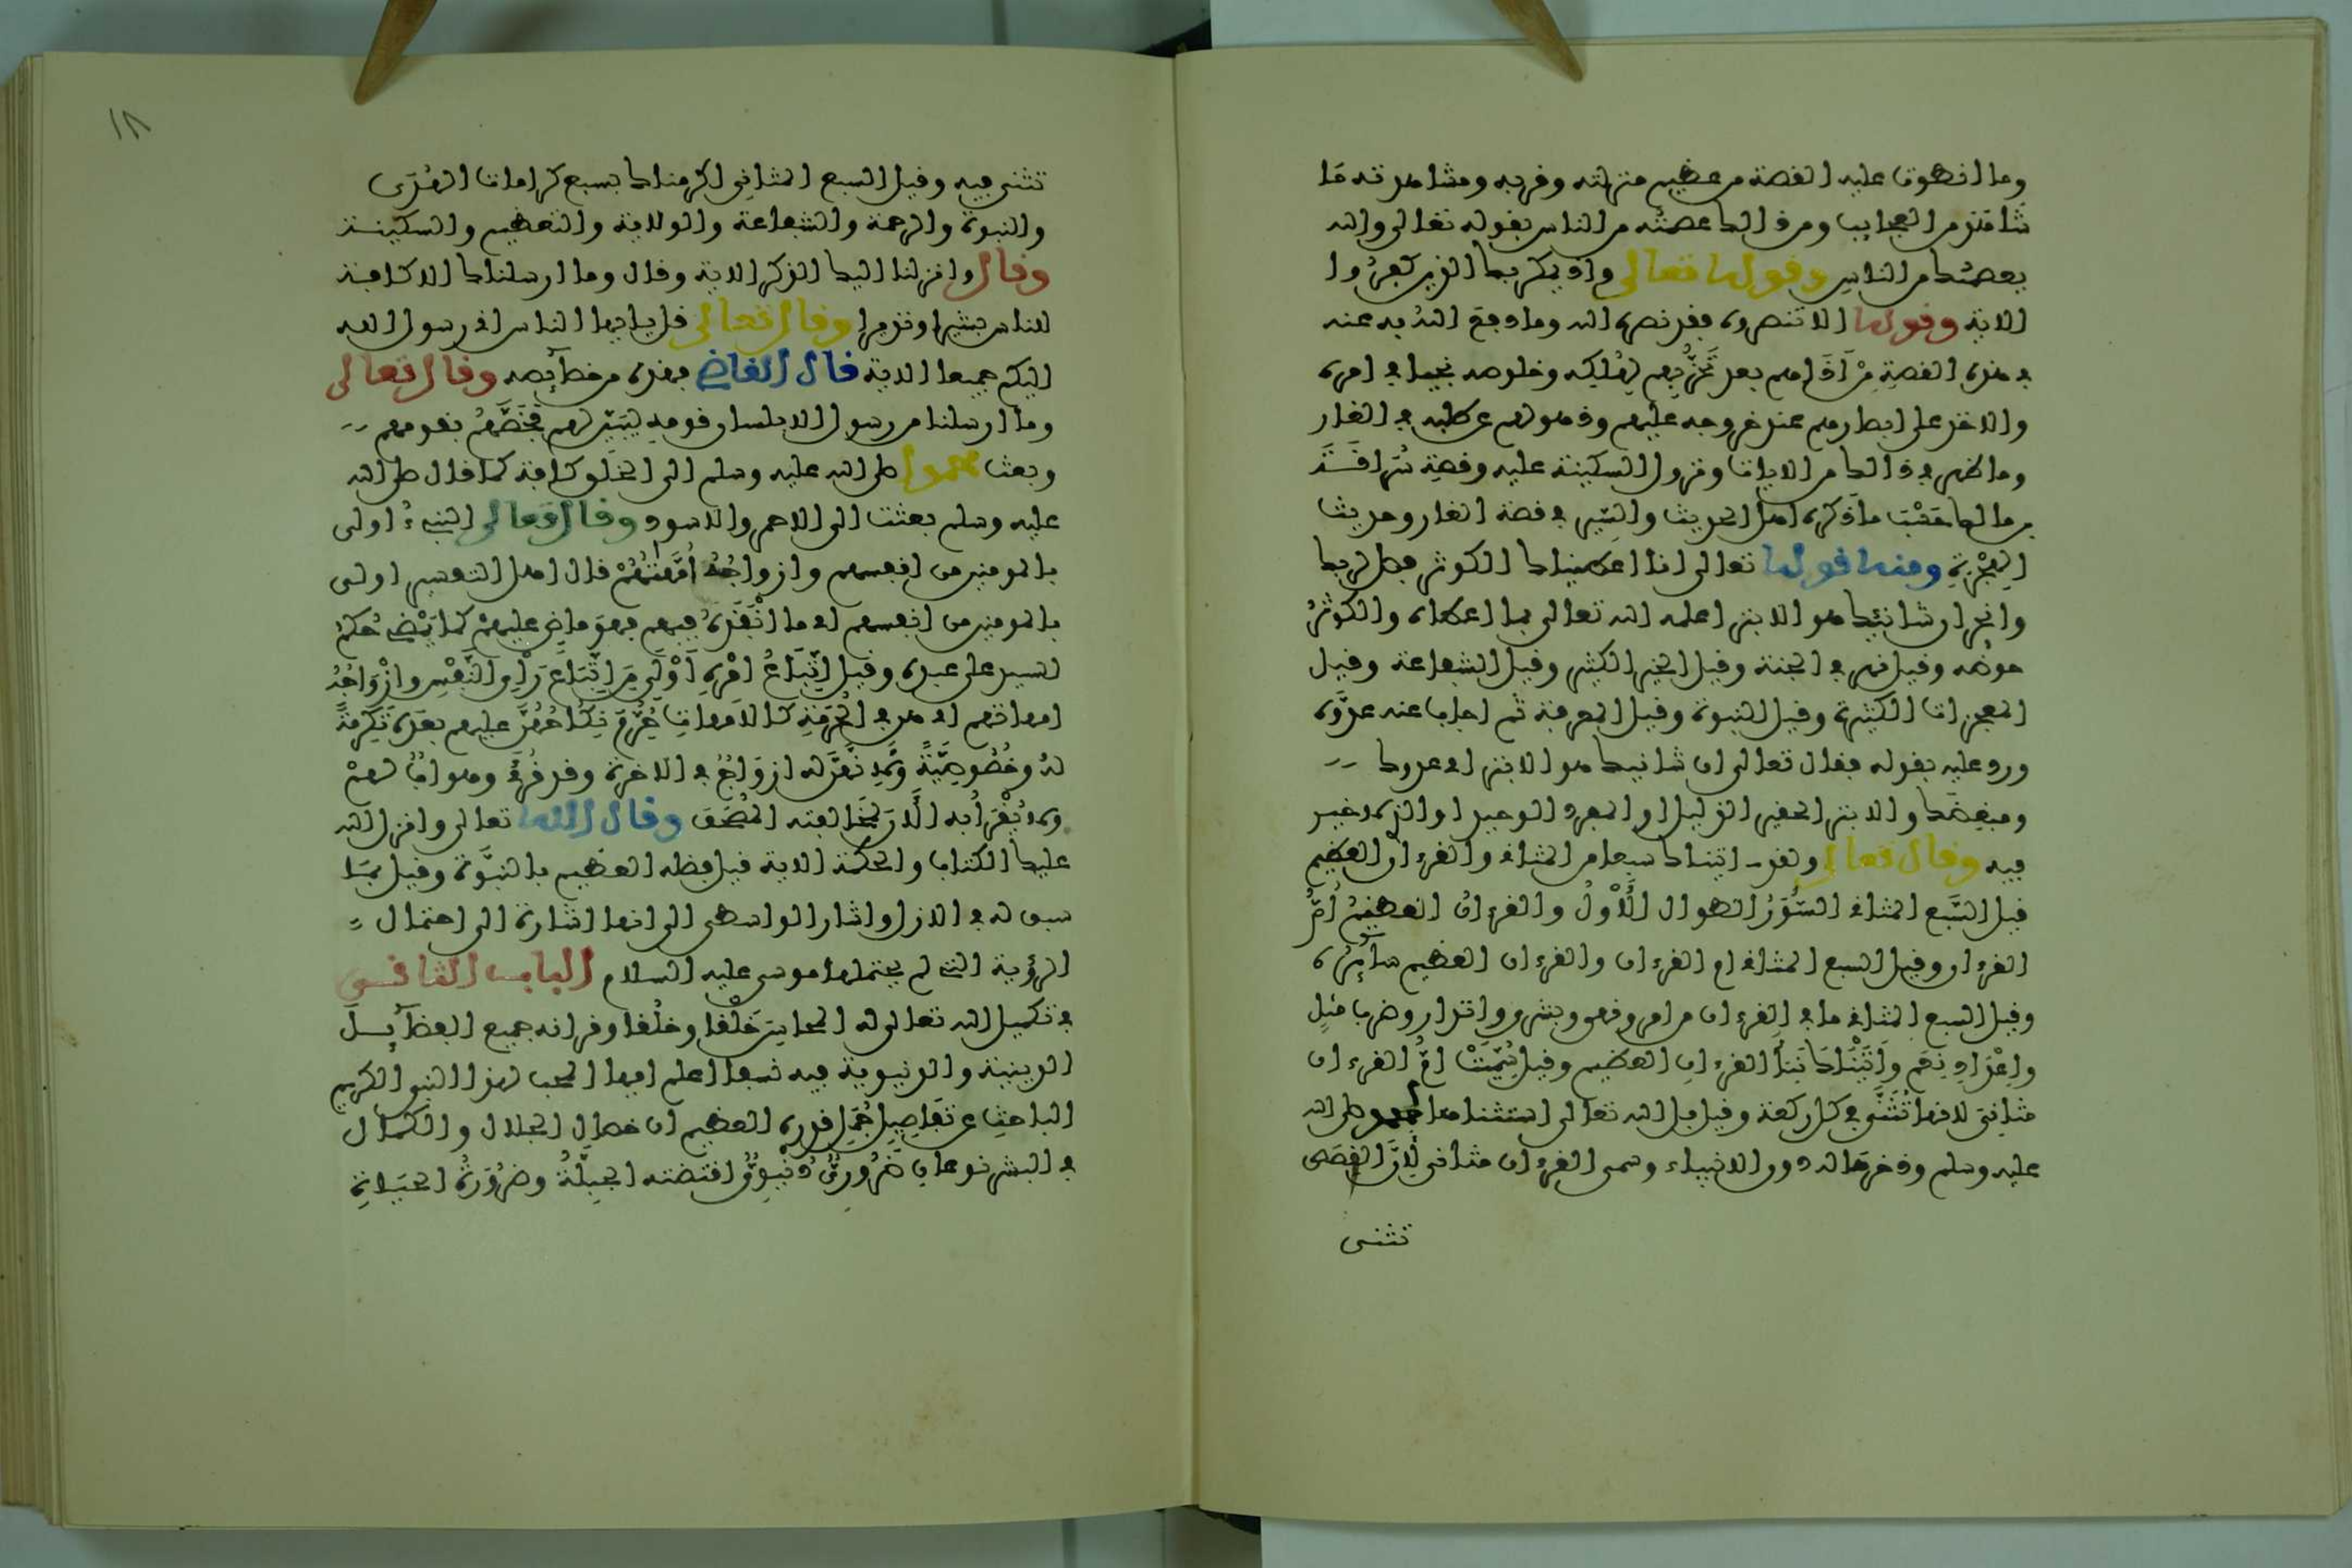 وما انطوت عليه القصة من عظيم منزلته وقربه ومشاهدته ما
شاهد من العجايب ومن ذالك عصمته من الناس بقوله تعالى والله
يعصمك من الناس وقوله تعالى واذ يمكر بك الذين كفروا
الاية وقوله الا تنصروه فقد نصره الله وما دفع الله به عنه
في هذه القصة من اذاهم بعد تحزبهم لهلكه وخلوصهم نجيا في امره
والاخذ على ابصارهم عند خروجه عليهم وذهولهم عن طلبه في الغار
وما ظهر في ذالك من الايات ونزول السكينة عليه وقصة سراقة
بن مالك حسب ما ذكره اهل الحديث والسير في قصة الغار وحديث
الهجرة ومنه قوله تعالى انا اعطيناك الكوثر فصل لربك
وانحر ان شانئك هو الابتر اعلمه الله تعالى بما اعطاه والكوثر
حوضه وقيل نهر في الجنة وقيل الخير الكثير وقيل الشفاعة وقيل
المعجزات الكثيرة وقيل النبوة وقيل المعرفة ثم اجاب عنه عدوه
ورد عليه بقوله فقال تعالى ان شانيك هو الابتر اي عدوك
ومبغضك والابتر الحقير الذليل او المفرد الوحيد او الذي لا خير
فيه وقال تعالى ولقد اتيناك سبعا من المثاني والقرءان العظيم
قيل السبع المثاني السور الطوال الاول والقرءان العظيم ام
القرءان وقيل السبع المثاني ام القرءان والقرءان العظيم سائره
وقيل السبع المثاني ما في القرءان من امر ونهي وبشرى وانذار وضرب مثل
واعداد نعم واتيناك نبأ القرءان العظيم وقيل سميت ام القرءان
مثاني لانها تثنى في كل ركعة وقيل بل الله تعالى استثناها لمحمد صلى الله
عليه وسلم وذخرها له دون الانبياء وسمى القرءان مثاني لان القصص
تثنى
١٨
تثنى فيه وقيل السبع المثاني اكرمناك بسبع كرامات الهدى
والنبوة والرحمة والشفاعة والولاية والتعظيم والسكينة
وقال وانزلنا اليك الذكر الاية وقال وما ارسلناك الا كافة
للناس بشيرا ونذيرا وقال تعالى قل يا ايها الناس اني رسول الله
اليكم جميعا الاية قال القاضي فهذه من خصآئصه وقال تعالى
وما ارسلنا من رسول الا بلسان قومه ليبين لهم فخصهم بقومهم
وبعث محمدا صلى الله عليه وسلم الى الخلق كافة كما قال صلى الله
عليه وسلم بعثت الى الاحمر والاسود وقال تعالى النبيء اولى
بالمومنين من انفسهم وازواجه أمهتهم قال اهل التفسير اولى
بالمومنين من انفسهم اي ما انفذه فيهم فهو ماض عليهم كما يمضي حكم
السيد على عبده وقيل اتباع امره أولى من اتباع رأي النفس وازواجه
امهاتهم اي هن في الحرمة كالامهات حرم نكاحهن عليهم بعده تكرمة
له وخصوصية ولانهن له ازواج في الاخرة وقد قرئ وهو اب لهم
ولا يقرأ به الان لمخالفته المصحف وقال الله تعالى وانزل الله
عليك الكتاب والحكمة الاية قيل فضله العظيم بالنبوة وقيل بما
سبق له في الازل واشار الواسطى الى انها اشارة الى احتمال
الرؤية التي لم يحتملها موسى عليه السلام الباب الثاني
في تكميل الله تعالى له المحاسن خلقا وخلقا وقرانه جميع الفضآيل
الدينية والدنيوية فيه نسقا اعلم ايها المحب لهذا النبي الكريم
الباحث عن تفاصيل جمل قدره العظيم ان خصال الجلال والكمال
في البشر نوعان ضروري دنيوي اقتضته الجبلة وضرورة الحياة